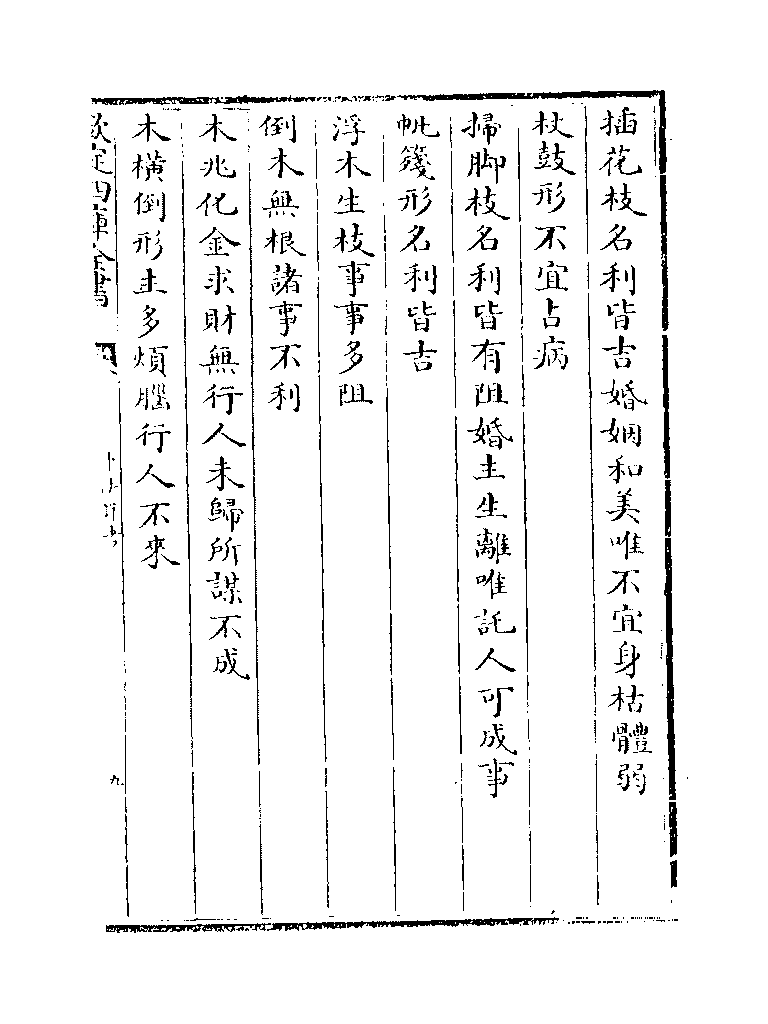 插花枝名利皆吉婚姻和美唯不宜身枯體弱
杖鼓形不宜占病
掃脚枝名利皆有阻婚主生離唯託人可成事
帆篷形名利皆吉
浮木生枝事事多阻
倒木無根諸事不利
木兆化金求財無行人未歸所謀不成
木橫倒形主多煩腦行人不來
欽定四庫全書
卜法詳考
九